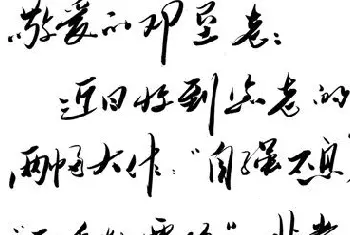 敬爱的邓垦老：
近日收到您老的
两幅大作。“自强不息